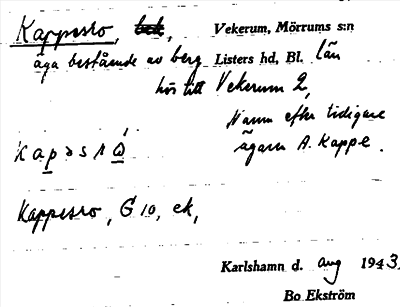 Kappesro, bek, Vekerum, Mörrums s:n
äga bestående av berg Listers hd, Bl. län
hör till Vekerum 2,
Namn efter tidigare
ägaren A. Kappe.
Kappesro, G 10, ek,
Karlshamn d. aug 1943.
Bo Ekström